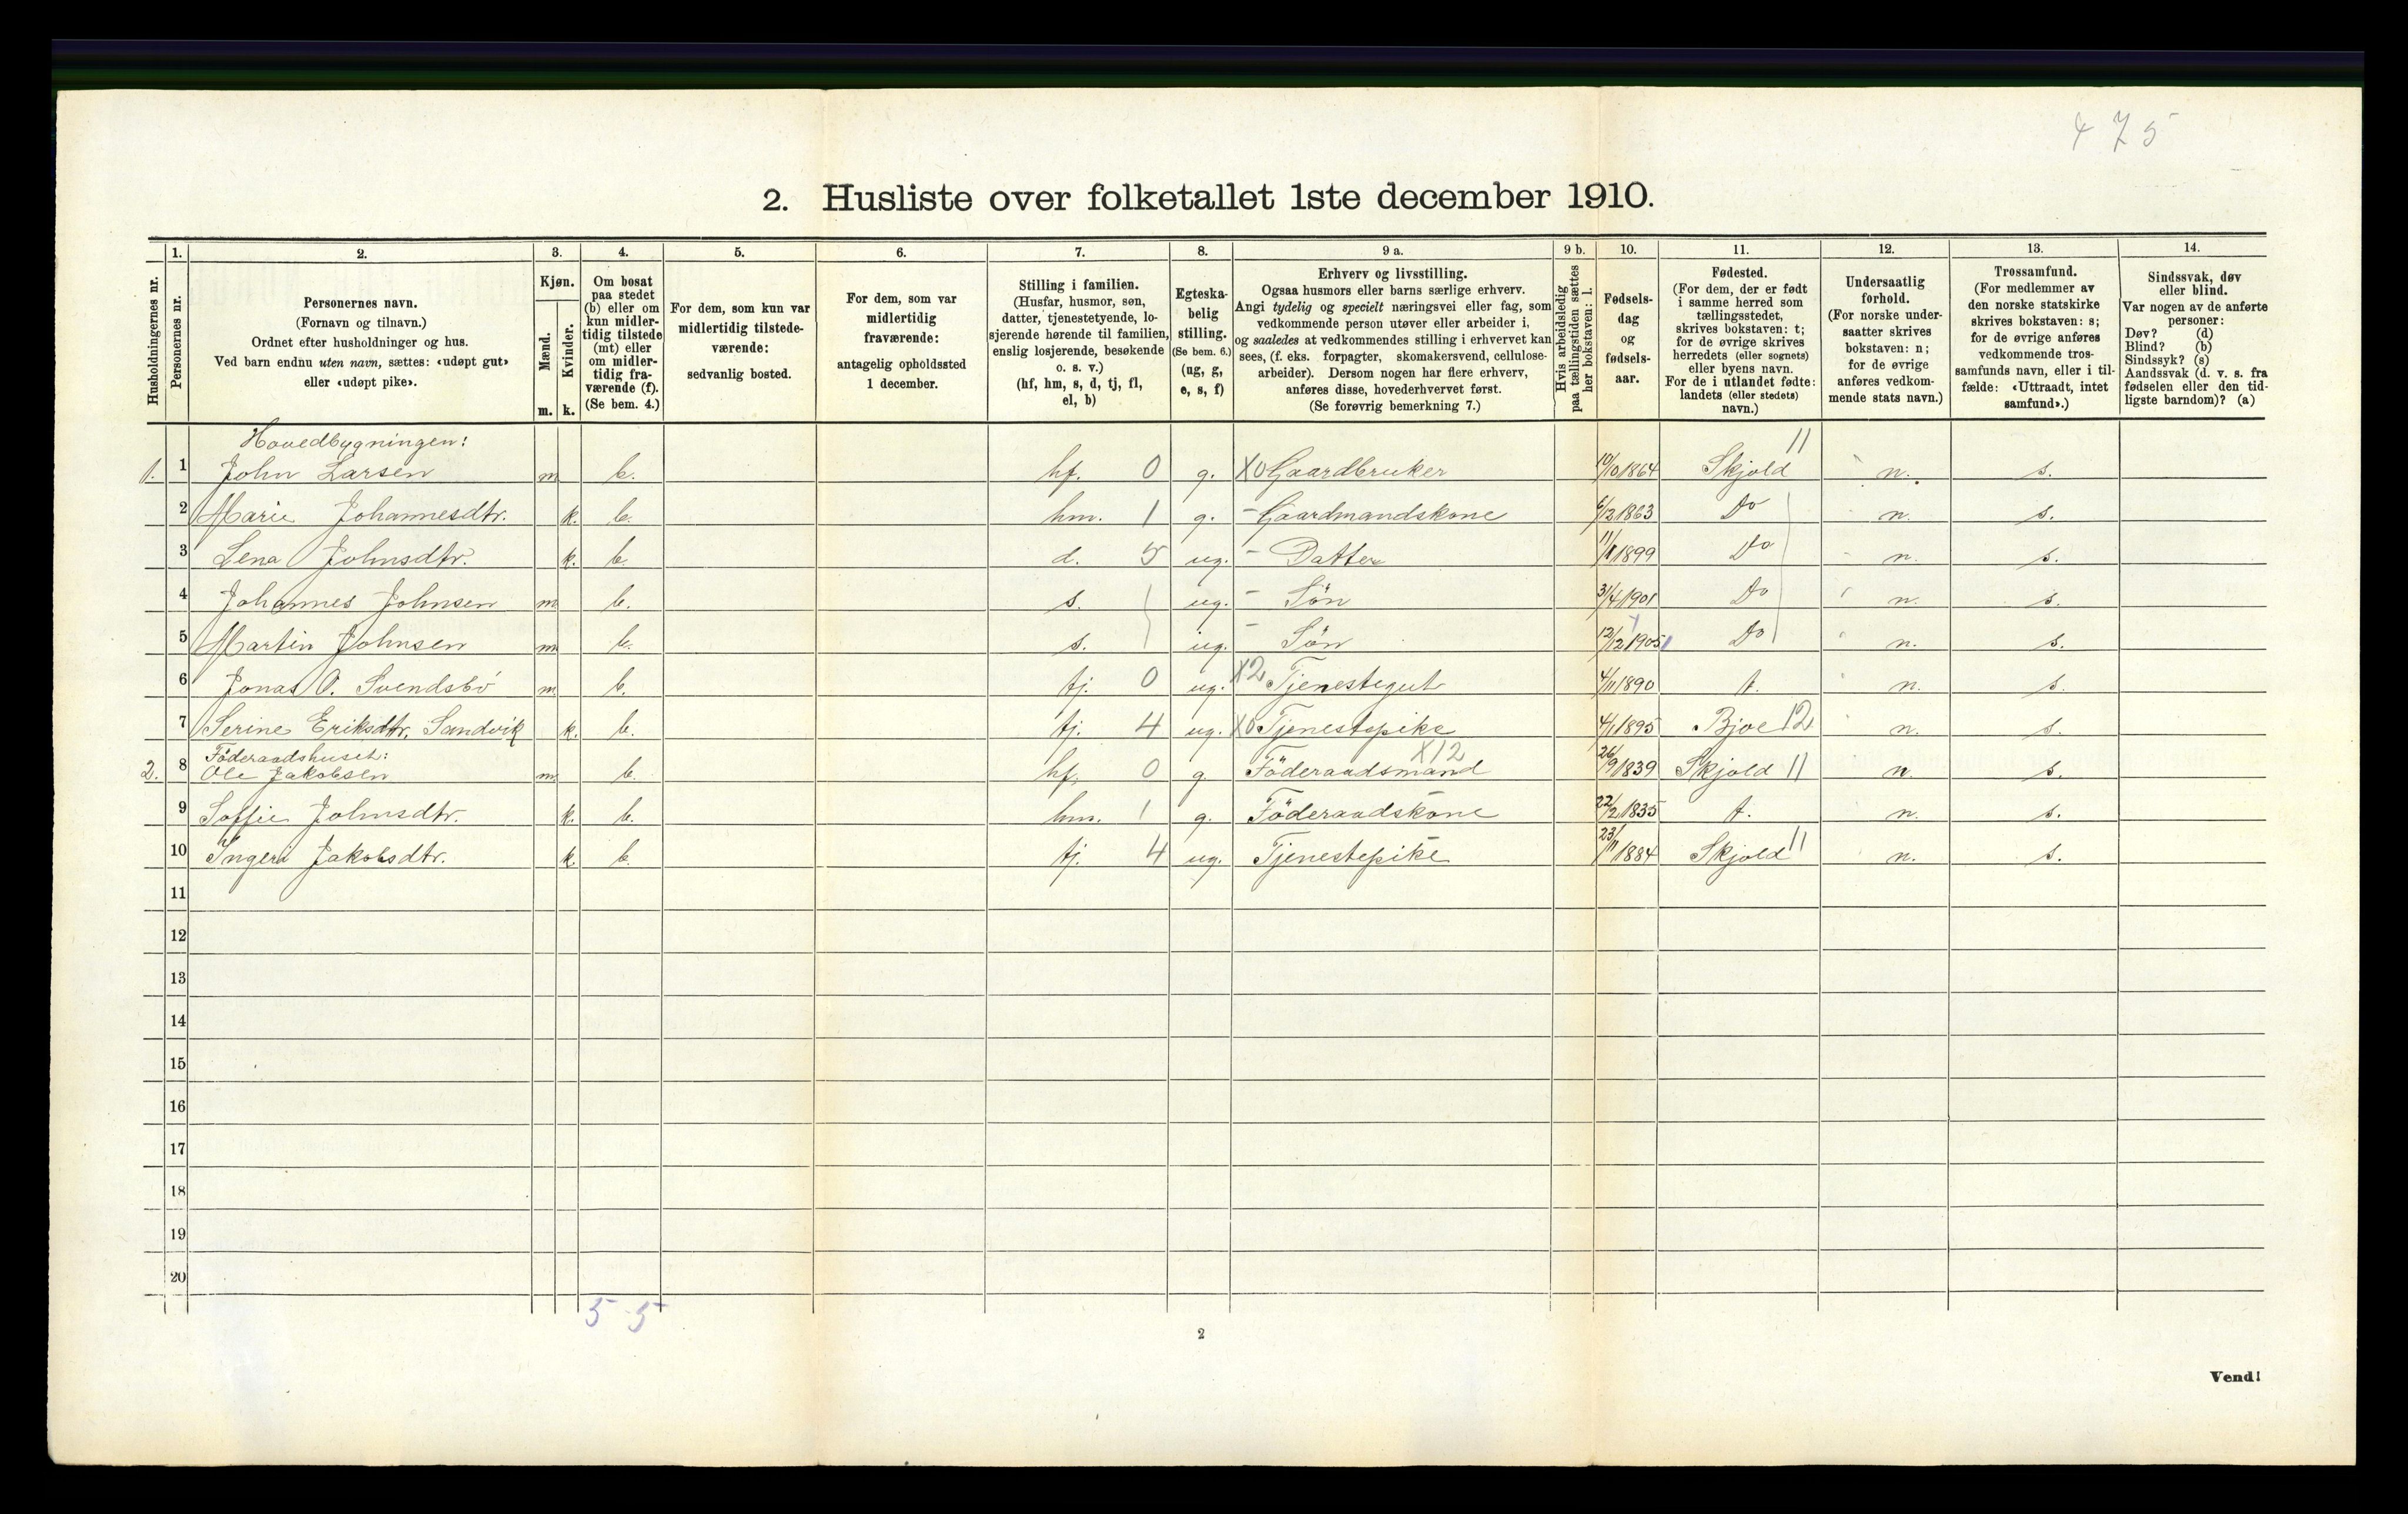 475
2. Husliste over folketallet 1ste december 1910.
Husholdningernes nr.
1. Personernes nr.
2. Personernes navn.
(Fornavn og tilnavn.)
Ordnet efter husholdninger og hus.
Ved barn endnu uten navn, sættes: «udøpt gut»
eller «udøpt pike».
3. Kjøn.
Mænd. m.
Kvinder. k.
4. Om bosat
paa stedet
(b) eller om
kun midler-
tidig tilstede
(mt) eller
om midler-
tidig fra-
værende (f).
(Se bem. 4.)
5. For dem, som kun var
midlertidig tilstede-
værende:
sedvanlig bosted.
6. For dem, som var
midlertidig
fraværende:
antagelig opholdssted
1 december.
7. Stilling i familien.
(Husfar, husmor, søn,
datter, tjenestetyende, lo-
sjerende hørende til familien,
enslig losjerende, besøkende
o. s. v.)
(hf, hm, s, d, tj, fl,
el, b)
8. Egteska-
belig
stilling.
(Se bem. 6.)
(ug, g,
e, s, f)
9 a. Erhverv og livsstilling.
Ogsaa husmors eller barns særlige erhverv.
Angi tydelig og specielt næringsvei eller fag, som
vedkommende person utøver eller arbeider i,
og saaledes at vedkommendes stilling i erhvervet kan
sees, (f. eks. forpagter, skomakersvend, cellulose-
arbeider). Dersom nogen har flere erhverv,
anføres disse, hovederhvervet først.
(Se forøvrig bemerkning 7.)
9 b. Hvis arbeidsledig
paa tællingstiden sættes
her bokstaven: l.
10. Fødsels-
dag
og
fødsels-
aar.
11. Fødested.
(For dem, der er født
i samme herred som
tællingsstedet,
skrives bokstaven: t;
for de øvrige skrives
herredets (eller sognets)
eller byens navn.
For de i utlandet fødte:
landets (eller stedets)
navn.)
12. Undersaatlig
forhold.
(For norske under-
saatter skrives
bokstaven: n;
for de øvrige
anføres vedkom-
mende stats navn.)
13. Trossamfund.
(For medlemmer av
den norske statskirke
skrives bokstaven: s;
for de øvrige anføres
vedkommende tros-
samfunds navn, eller i til-
fælde: «Uttraadt, intet
samfund».)
14. Sindssvak, døv
eller blind.
Var nogen av de anførte
personer:
Døv? (d)
Blind? (b)
Sindssyk? (s)
Aandssvak (d. v. s. fra
fødselen eller den tid-
ligste barndom)? (a)
Hovedbygningen:
1. 1 John Larsen m b. hf. 0 g. X0 Gaardbruker 10/10 1864 Skjold 11 n. s.
2 Marie Johannesdtr. k. b. hm. 1 g. - Gaardmandskone 6/12 1863 Do n. s.
3 Lena Johnsdtr. k. b. d. 5 ug. - Datter 1899 Do n. s.
4 Johannes Johnsen m b. s. ug. - Søn 31/4 1901 Do n. s.
5 Martin Johnsen m b. s. ug. - Søn 12/12 1905 Do n. s.
6 Jonas O. Svendsbö m. b. tj. 0 ug. X2 Tjenestegut 4/11 1890 t. n. s.
7 Serine Eriksdtr. Sandvik k. b. tj. 4 ug. X0 Tjenestepike 4/1 1895 Bjoe 12 n. s.
Föderaadshuset:
2. 8 Ole Jakobsen m b. hf. 0 g. Föderaadsmand X12 26/9 1839 Skjold 11 n. s.
9 Soffie Johnsdtr. k. b. hm. 1 g. Föderaadskone 22/2 1835 t. n. s.
10 Ingeri Jakobsdtr. k. b. tj. 4 ug. Tjenestepike 23/11 1884 Skjold 11 n. s.
11
12
13
14
15
16
17
18
19
20
5-5
2
Vend!